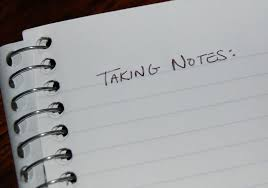 TAKING NOTES: